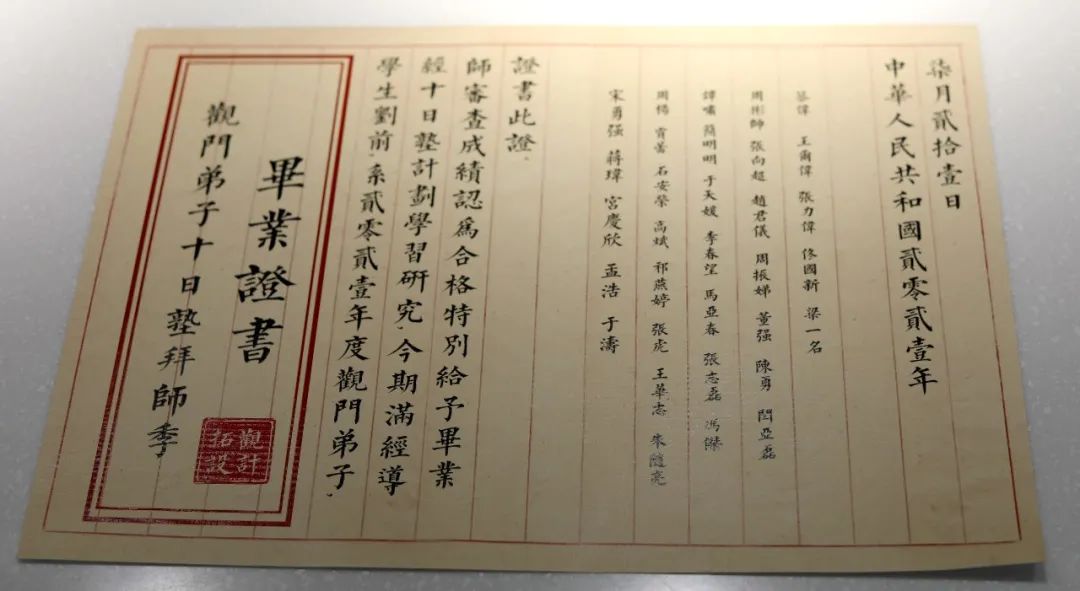 觀門弟子十日塾拜師季
畢業證書
拓觀
設計
學生劉前,系貳零貳壹年度觀門弟子,
經十日塾計劃學習研究,今期滿經導
師審查成績認爲合格特別給予畢業
證書此證.
宋勇强 蔣瑋 宮慶欣 孟浩 于濤
周楊 石安榮 高斌 祁燕婷 張虎 王華志 朱隨亮
譚嘯 簡明明 于天媛 李春望 馬亞春 張志磊 馮傑
周彬師 張向超 趙君儀 周振娣 董强 陳勇 閆亞磊
王爾偉 張力偉 修國新 梁一名
中華人民共和國貳零貳壹年
柒月貳拾壹日